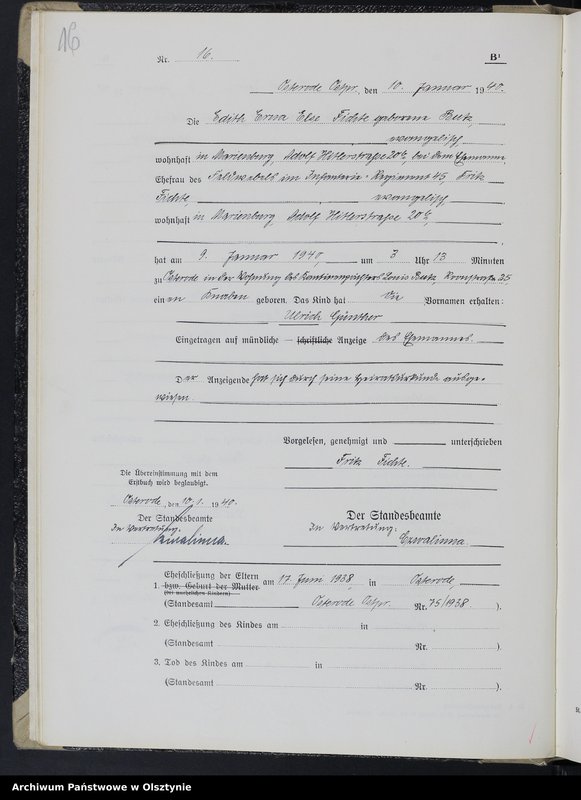 16
Nr. 16.
B¹
Osterode Ostpr., den 10. Januar 1940.
Die Edith Erna Else Fichte geborene
evangelisch
wohnhaft in Marienburg, Adolf Hitlerstraße 20, bei dem Ehemanne
Ehefrau des Feldwebels im Infanterie-Regiment 45, Fritz
Fichte, evangelisch
wohnhaft in Marienburg, Adolf Hitlerstraße 20
hat am 9. Januar 1940, um 3 Uhr 13 Minuten
zu Osterode in der Wohnung des Louis
einen Knaben geboren. Das Kind hat die Vornamen erhalten:
Ulrich Günther
Eingetragen auf mündliche — schriftliche Anzeige des Ehemannes.
Der Anzeigende hat sich durch seine Heiratsurkunde ausge-
wiesen.
Vorgelesen, genehmigt und unterschrieben
Fritz Fichte.
Die Übereinstimmung mit dem
Erstbuch wird beglaubigt.
Osterode, den 10.1. 1940.
Der Standesbeamte
In Vertretung:
Czwalinna.
Der Standesbeamte
In Vertretung:
Czwalinna.
1. Eheschließung der Eltern
bzw. Geburt der Mutter
(bei unehelichen Kindern)
am 17. Juni 1938, in Osterode
(Standesamt Osterode Ostpr. Nr. 75/1938 ).
2. Eheschließung des Kindes am in
(Standesamt Nr. ).
3. Tod des Kindes am in
(Standesamt Nr. ).
Archiwum Państwowe w Olsztynie